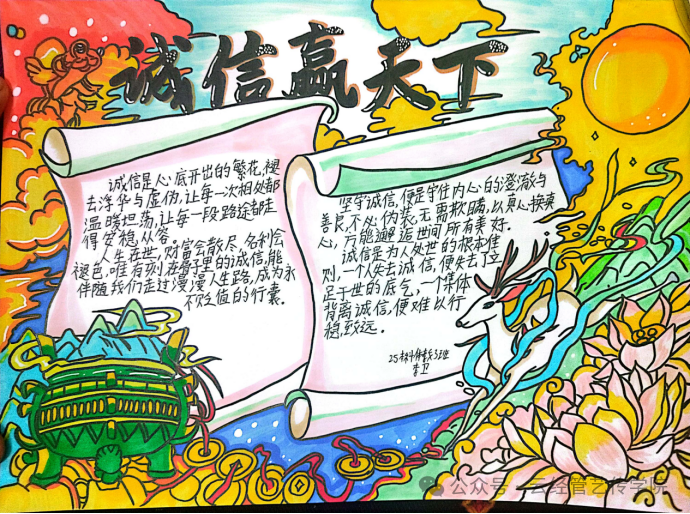 诚信赢天下
诚信是人心底开出的繁花,褪
去浮华与虚伪,让每一次相处都
温暖坦荡,让每一段路途都走
得安稳从容。
人生在世,财富会散尽,名利会
褪色,唯有刻在骨里的诚信,能
伴随我们走过漫漫人生路,成为永
不贬值的行囊。
坚守诚信,便是守住内心的澄澈与
善良,不必伪装,无需欺瞒,以真心换真
心,方能邂逅世间所有美好。
诚信是为人处世的根本准
则,一个人失去诚信,便失去了立
足于世的底气,一个集体
背离诚信,便难以行
稳致远。
3班
李卫
公众号·云经管艺传学院